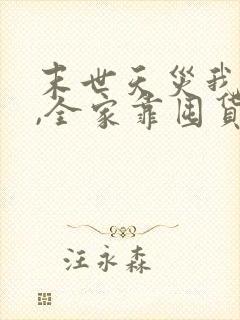 末世天灾我
,全家靠囤货
汪永森